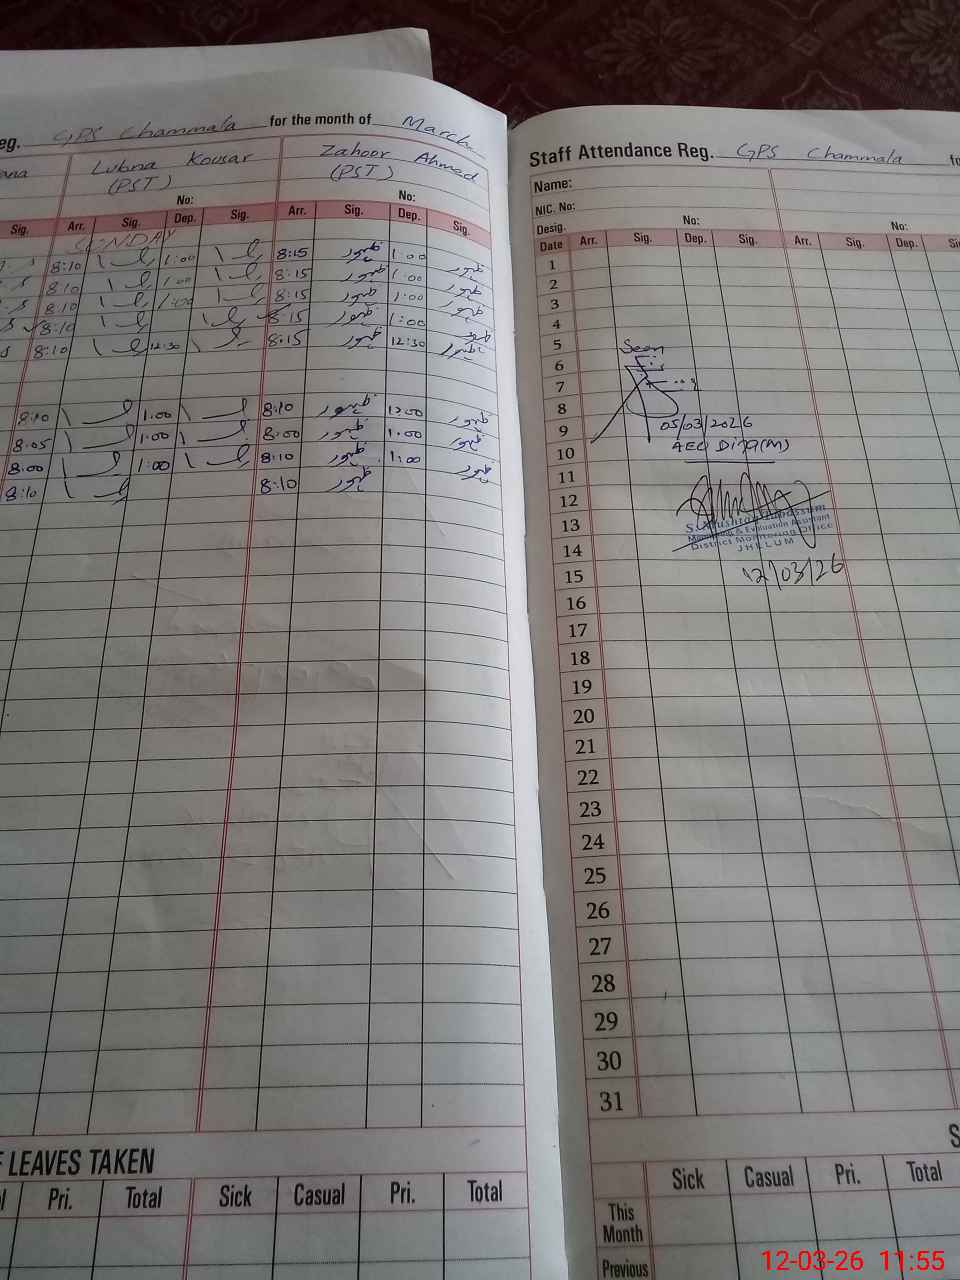 eg. GPS Chammala for the month of March
ana Lubna Kousar Zahoor Ahmed
(PST) (PST)
No: No:
Sig. Arr. Sig. Dep. Sig. Arr. Sig. Dep. Sig.
SUNDAY
8:10 1:00 8:15 ظہور 1:00 ظہور
8:10 1:00 8:15 ظہور 1:00 ظہور
8:10 1:00 8:15 ظہور 1:00 ظہور
8:10 8:15 ظہور 1:00 ظہور
8:10 12:30 8:15 ظہور 12:30 ظہور
8:10 1:00 8:10 ظہور 12:00 ظہور
8:05 1:00 8:00 ظہور 1:00 ظہور
8:00 1:00 8:10 ظہور 1:00 ظہور
8:10 8:10 ظہور
LEAVES TAKEN
Pri. Total Sick Casual Pri. Total
Staff Attendance Reg. GPS Chammala fo
Name:
NIC. No:
Desig. No: No:
Date Arr. Sig. Dep. Sig. Arr. Sig. Dep.
1
2
3
4
5
Seen
6
7
8
9
05/03/2026
10
AEO Dina(M)
11
12
13
Monitoring & Evaluation Assistant
District Monitoring Office
JHELUM
14
15
12/03/26
16
17
18
19
20
21
22
23
24
25
26
27
28
29
30
31
S
Sick Casual Pri. Total
This
Month
Previous
12-03-26 11:55